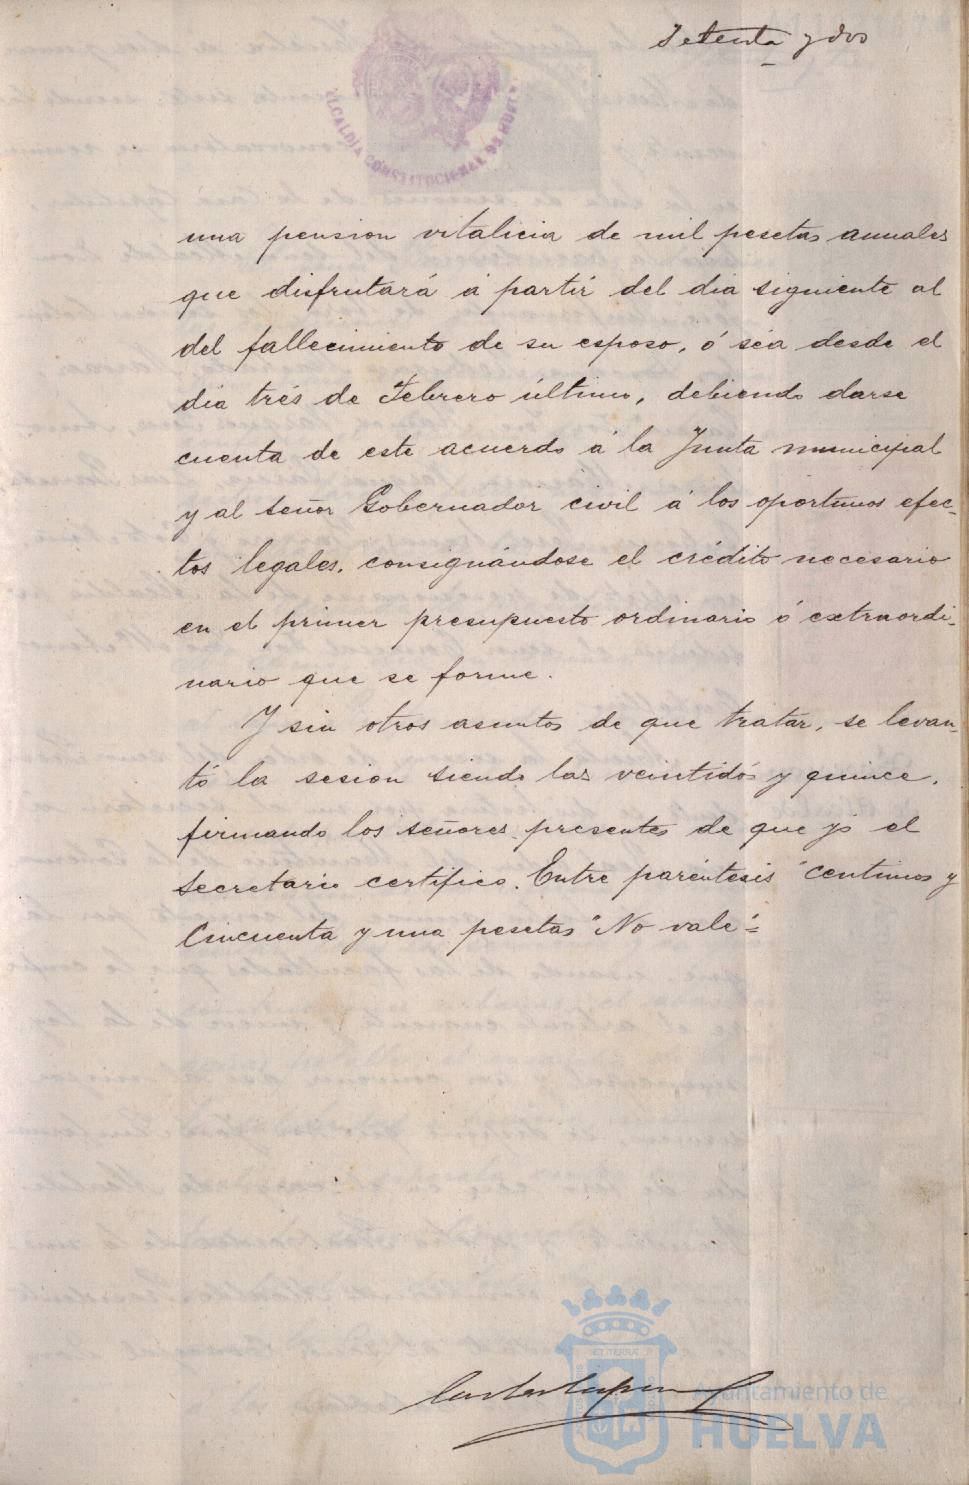 Setenta y dos
ALCALDÍA CONSTITUCIONAL DE HUELVA
una pension vitalicia de mil pesetas anuales
que disfrutará á partir del dia siguiente al
del fallecimiento de su esposo, ó sea desde el
dia trés de Febrero último, debiendo darse
cuenta de este acuerdo á la Junta municipal
y al señor Gobernador civil á los oportunos efec-
tos legales, consignándose el crédito necesario
en el primer presupuesto ordinario ó extraordi-
nario que se forme.
Y sin otros asuntos de que tratar, se levan-
tó la sesion siendo las veintidós y quince,
firmando los señores presentes de que yo el
Secretario certifico. Entre paréntesis "centimos y
Cincuenta y una pesetas" No vale=
Ayuntamiento de
HUELVA